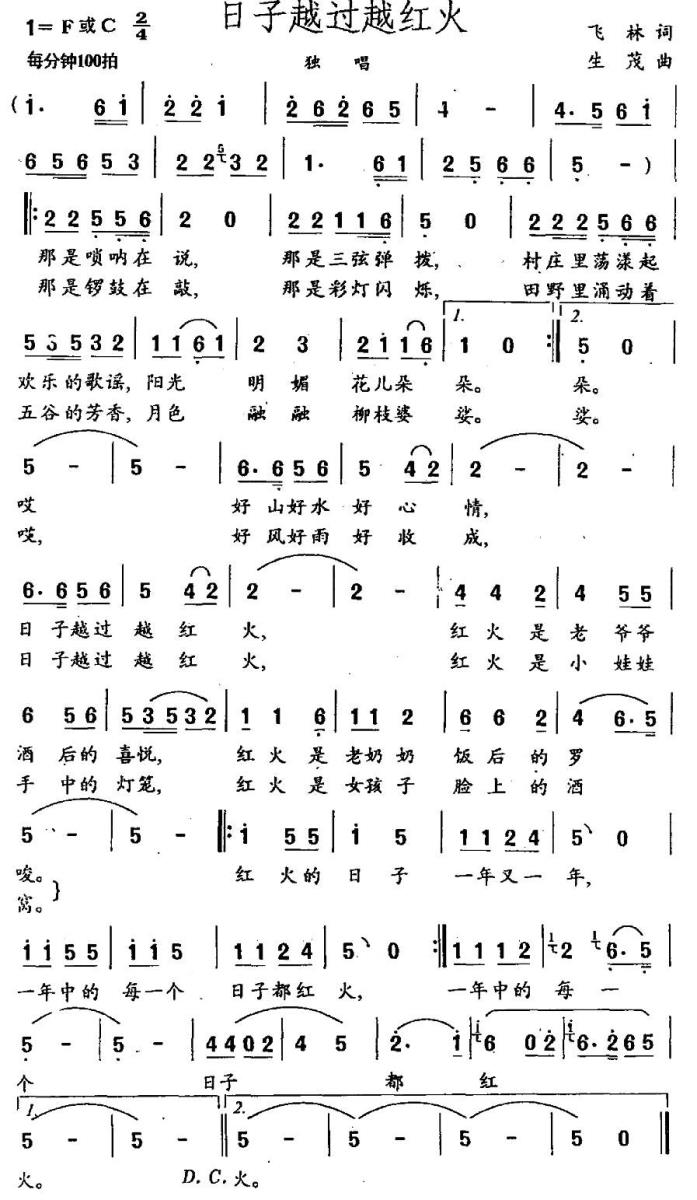 日子越过越红火
1= F 或 C 2/4
飞 林 词
每分钟100拍
独 唱
生 茂 曲
( i· 6 i | 2 2 i | 2 6 2 6 5 | 4 - | 4· 5 6 i |
6 5 6 5 3 | 2 2 3 2 | 1· 6 1 | 2 5 6 6 | 5 - )
‖: 2 2 5 5 6 | 2 0 | 2 2 1 1 6 | 5 0 | 2 2 2 5 6 6 |
那是唢呐在 说, 那是三弦弹 拨, 村庄里荡漾起
那是锣鼓在 敲, 那是彩灯闪 烁, 田野里涌动着
1. 2.
5 3 5 3 2 | 1 1 6 1 | 2 3 | 2 1 1 6 | 1 0 :‖ 5 0 |
欢乐的歌谣, 阳光 明 媚 花儿朵 朵。 朵。
五谷的芳香, 月色 融 融 柳枝婆 娑。 娑。
5 - | 5 - | 6· 6 5 6 | 5 4 2 | 2 - | 2 - |
哎 好 山好水 好 心 情,
哎, 好 风好雨 好 收 成,
6· 6 5 6 | 5 4 2 | 2 - | 2 - | 4 4 2 | 4 5 5 |
日 子越过 越 红 火, 红 火 是 老 爷爷
日 子越过 越 红 火, 红 火 是 小 娃娃
6 5 6 | 5 3 5 3 2 | 1 1 6 | 1 1 2 | 6 6 2 | 4 6· 5 |
酒 后的 喜悦, 红 火 是 老奶奶 饭 后 的 罗
手 中的 灯笼, 红 火 是 女孩子 脸 上 的 酒
5 - | 5 - ‖: i 5 5 | i 5 | 1 1 2 4 | 5 0 |
唆。 红 火的 日 子 一年又一 年,
窝。 }
i i 5 5 | i i 5 | 1 1 2 4 | 5 0 :‖ 1 1 1 2 | 2 6· 5 |
一年中的 每一个 日子都红 火, 一年中的 每 一
5 - | 5 - | 4 4 0 2 | 4 5 | 2· i | 6 0 2 | 6· 2 6 5 |
个 日子 都 红
1. 2.
5 - | 5 - ‖ 5 - | 5 - | 5 - | 5 0 ‖
火。 D.C. 火。